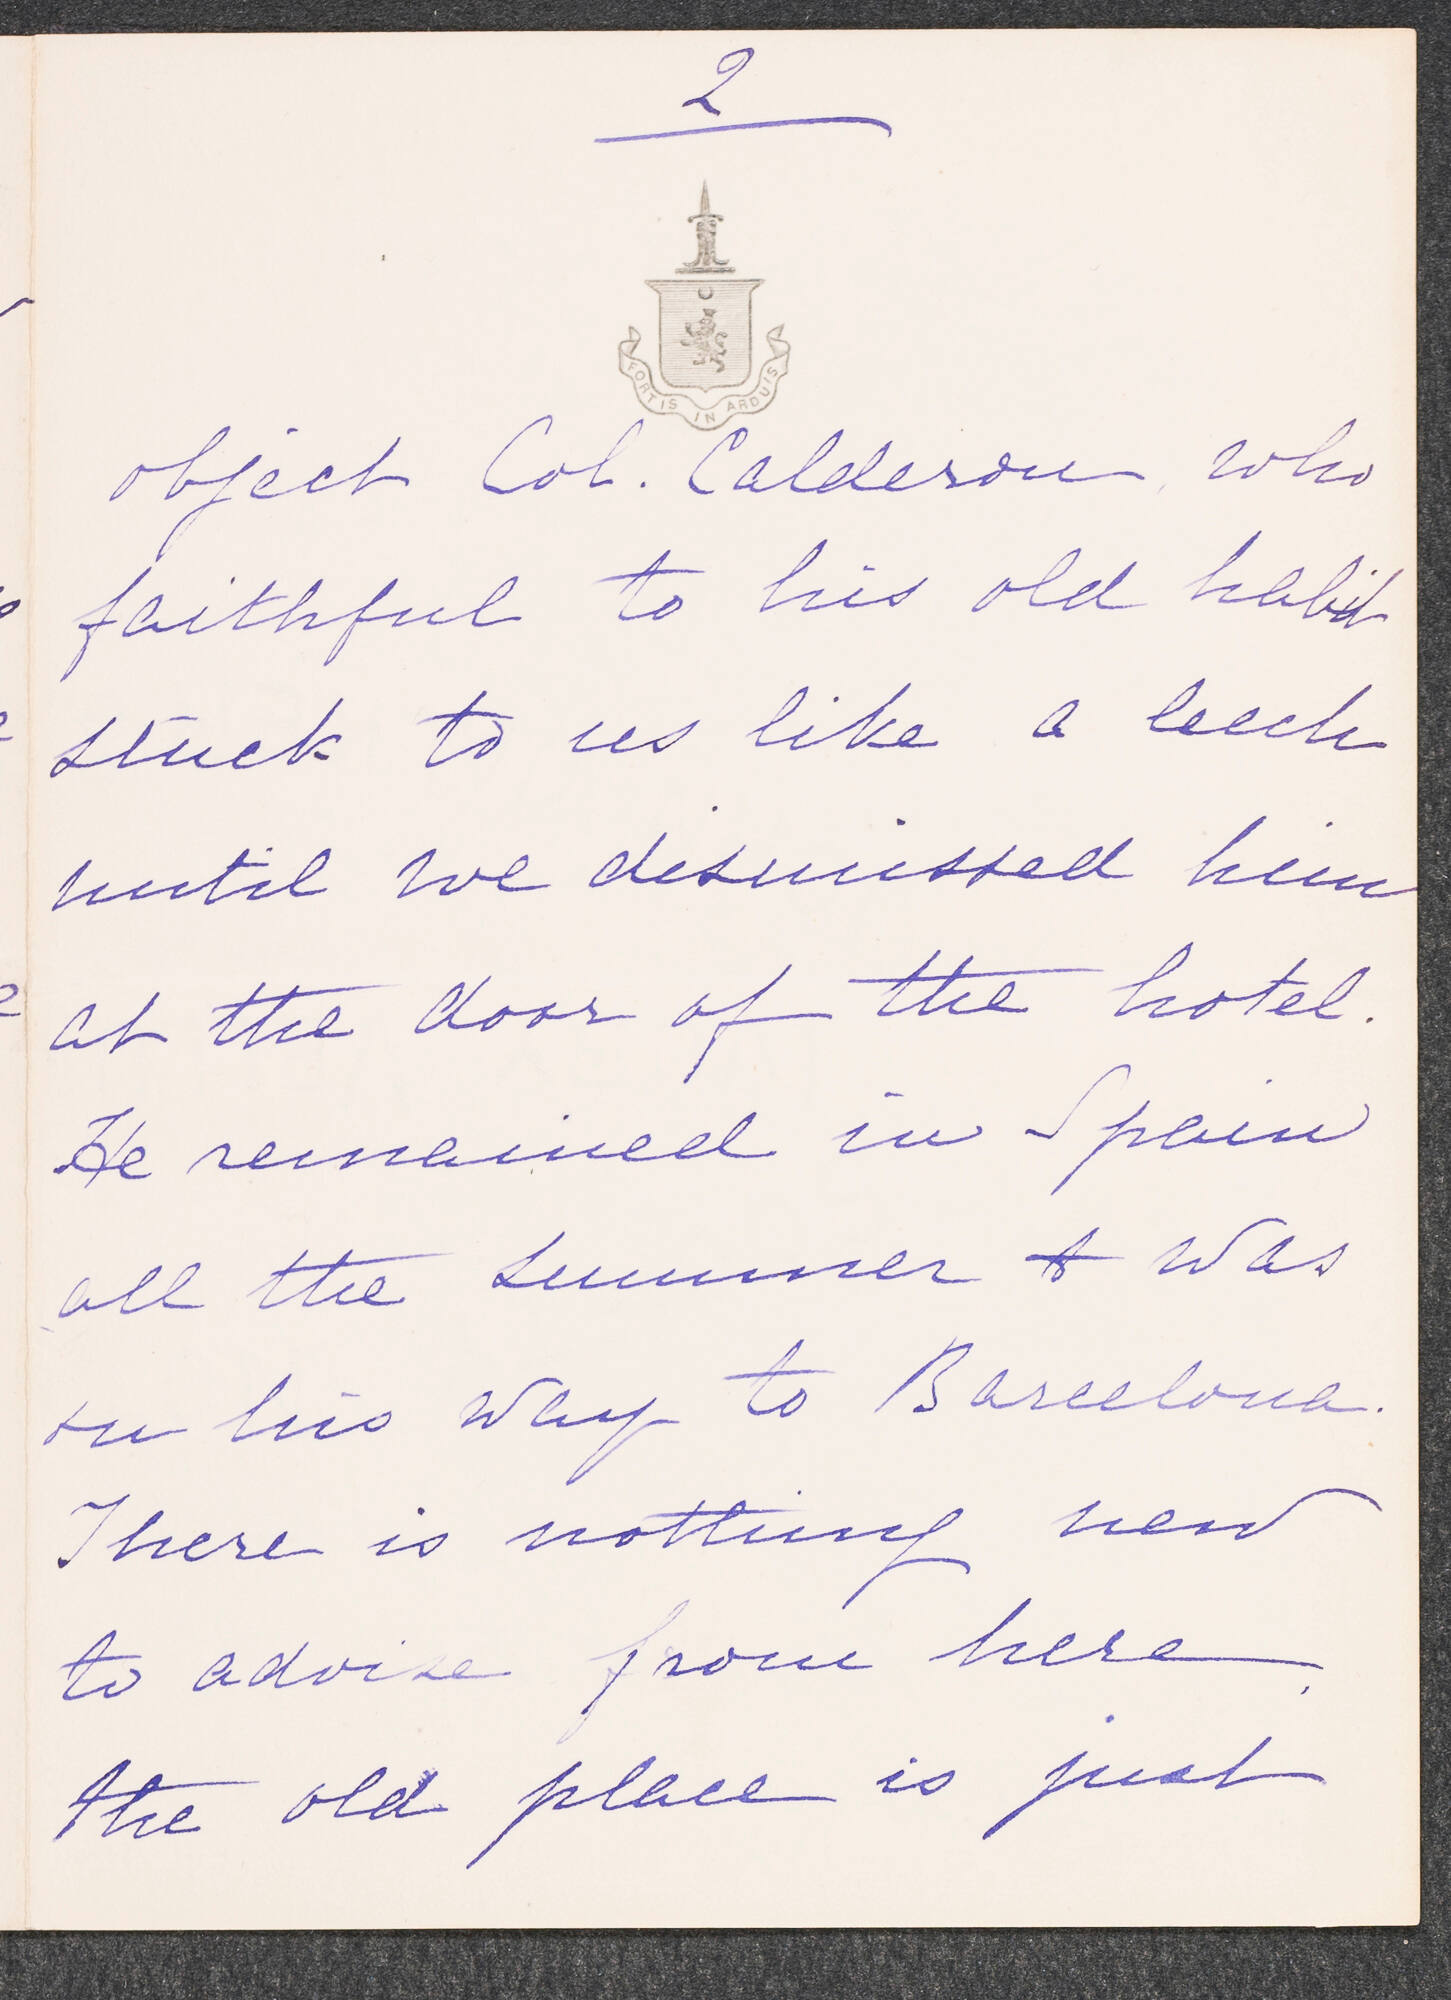 2
FORTIS IN ARDUIS
object Col. Calderon, who
faithful to his old habit
stuck to us like a leech
until we dismissed him
at the door of the hotel.
He remained in Spain
all the summer & was
on his way to Barcelona.
There is nothing new
to advise from here,
the old place is just